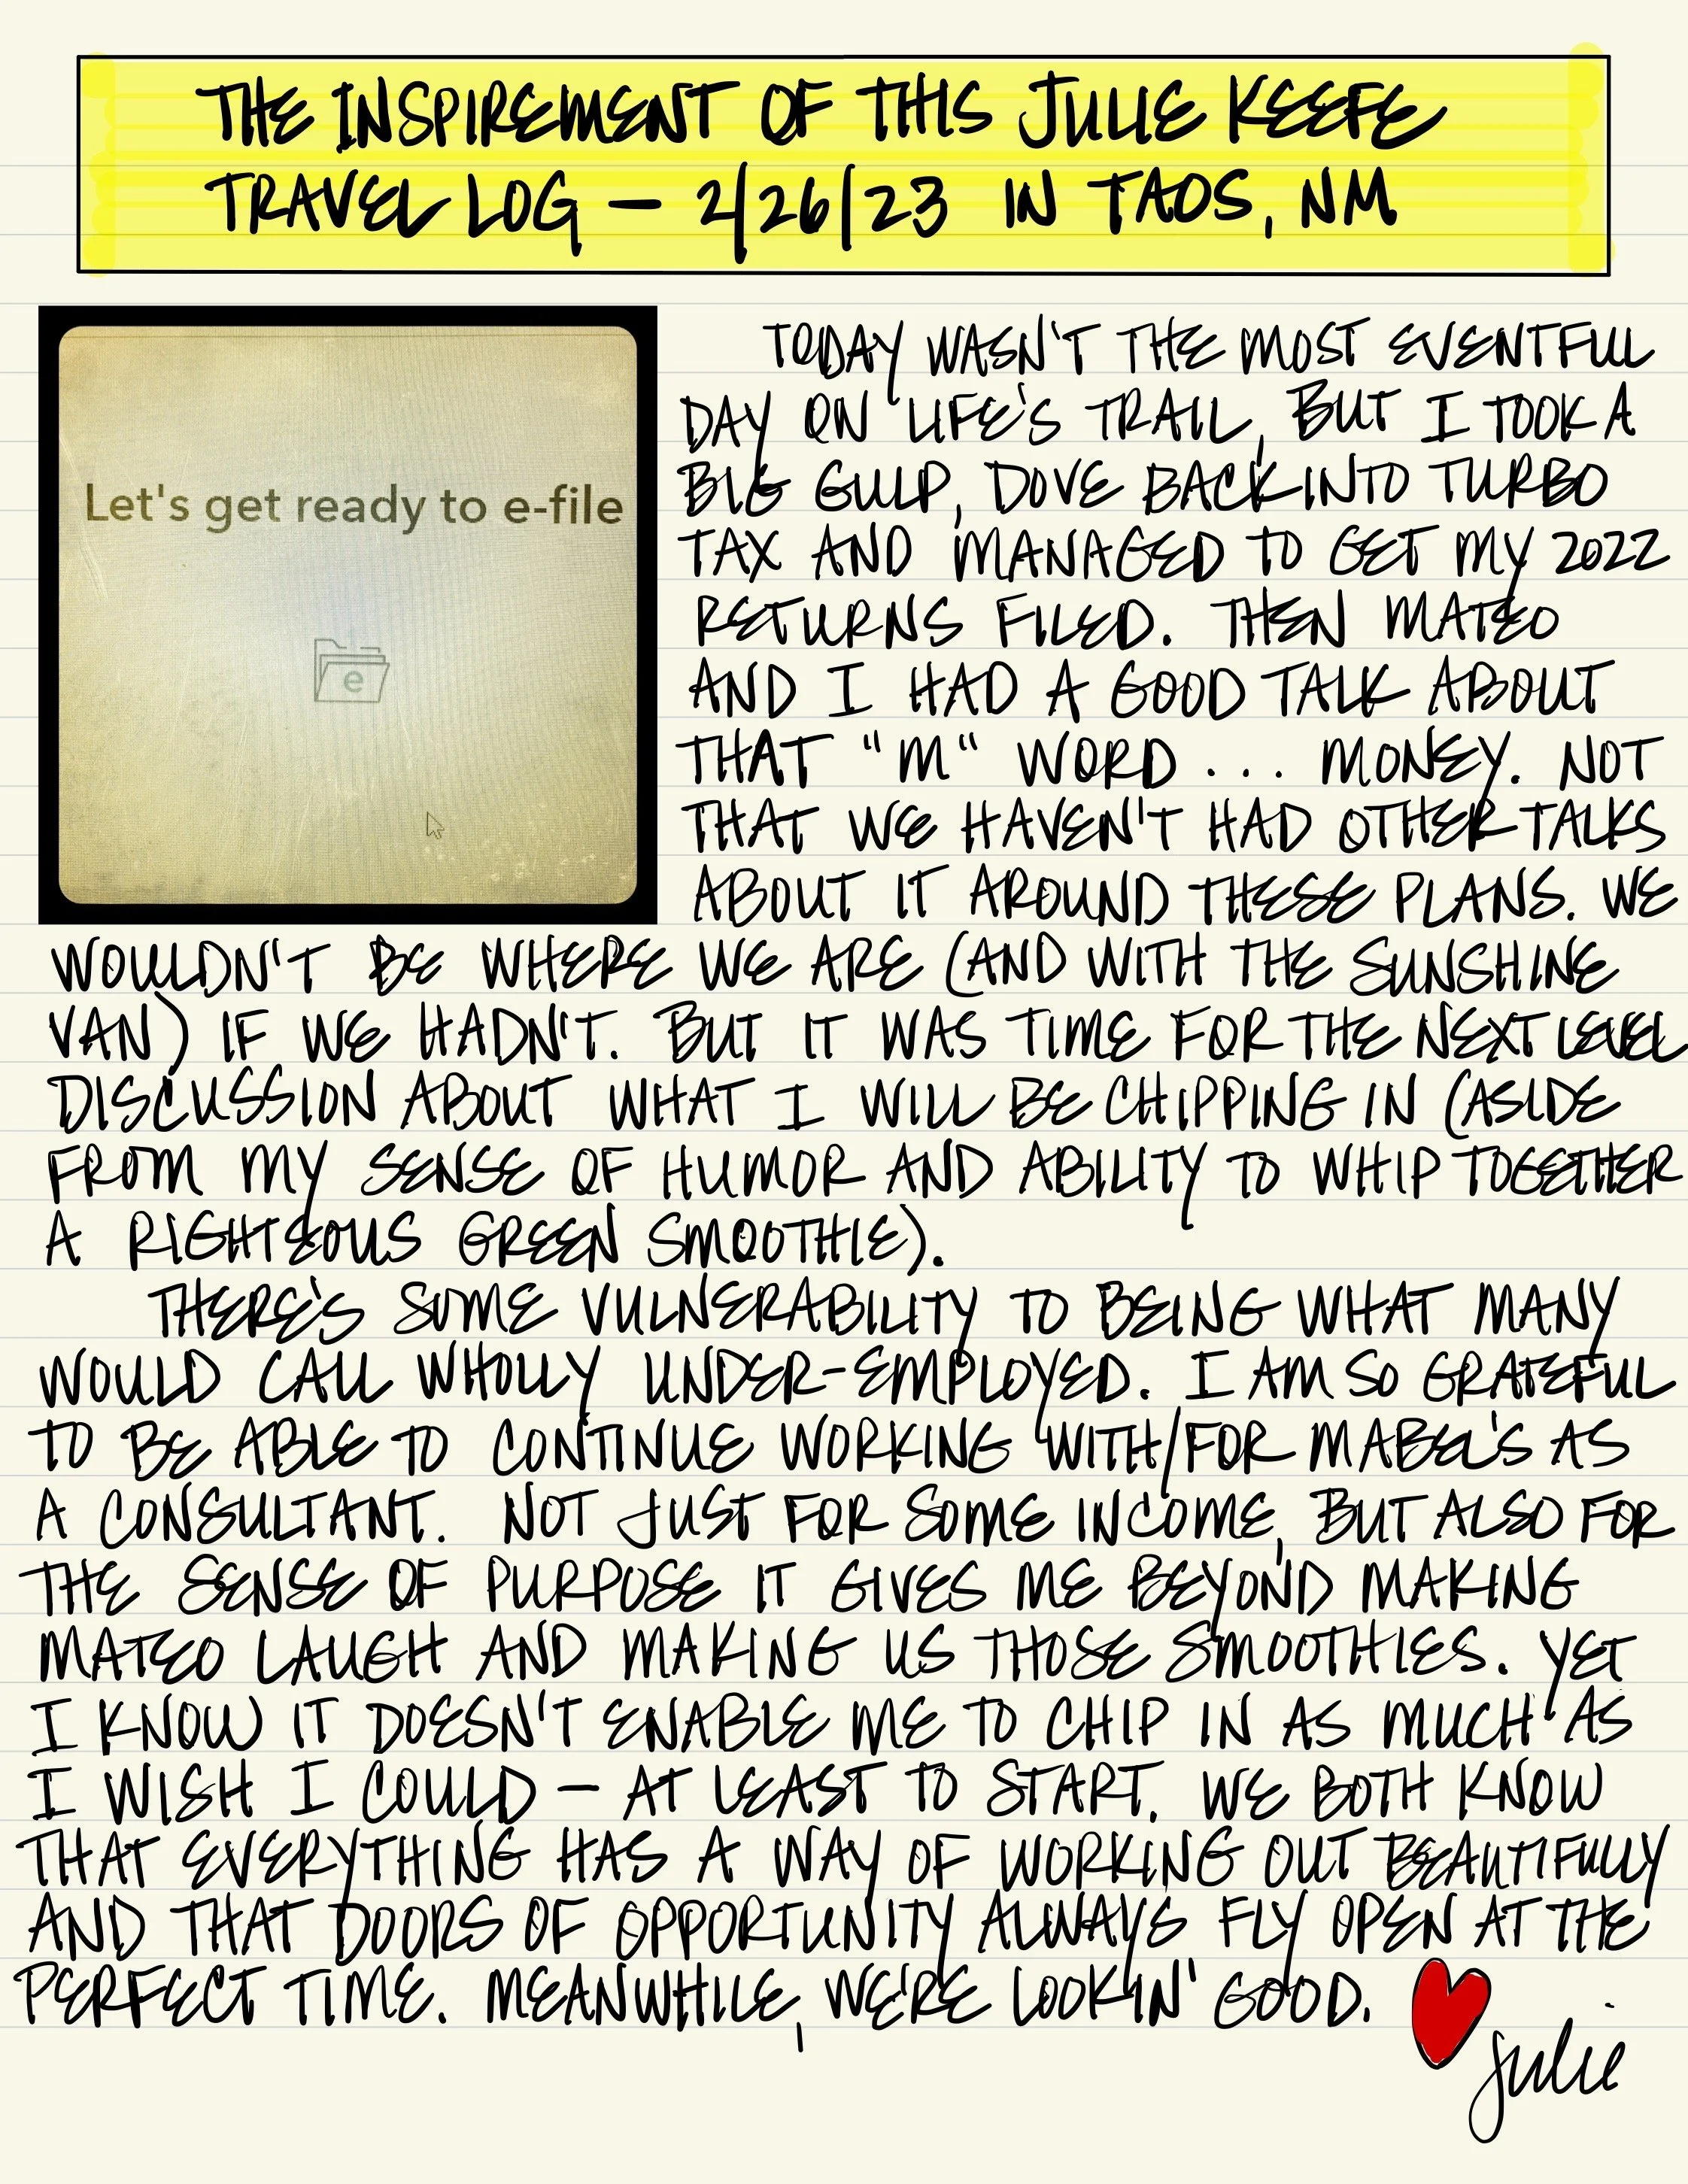 THE INSPIREMENT OF THIS JULIE KEEFE
TRAVEL LOG – 2/26/23 IN TAOS, NM
Let's get ready to e-file
e
TODAY WASN'T THE MOST EVENTFUL
DAY ON LIFE'S TRAIL, BUT I TOOK A
BIG GULP, DOVE BACK INTO TURBO
TAX AND MANAGED TO GET MY 2022
RETURNS FILED. THEN MATEO
AND I HAD A GOOD TALK ABOUT
THAT "M" WORD ... MONEY. NOT
THAT WE HAVEN'T HAD OTHER TALKS
ABOUT IT AROUND THESE PLANS. WE
WOULDN'T BE WHERE WE ARE (AND WITH THE SUNSHINE
VAN) IF WE HADN'T. BUT IT WAS TIME FOR THE NEXT LEVEL
DISCUSSION ABOUT WHAT I WILL BE CHIPPING IN (ASIDE
FROM MY SENSE OF HUMOR AND ABILITY TO WHIP TOGETHER
A RIGHTEOUS GREEN SMOOTHIE).
THERE'S SOME VULNERABILITY TO BEING WHAT MANY
WOULD CALL WHOLLY UNDER-EMPLOYED. I AM SO GRATEFUL
TO BE ABLE TO CONTINUE WORKING WITH/FOR MABEL'S AS
A CONSULTANT. NOT JUST FOR SOME INCOME, BUT ALSO FOR
THE SENSE OF PURPOSE IT GIVES ME BEYOND MAKING
MATEO LAUGH AND MAKING US THOSE SMOOTHIES. YET
I KNOW IT DOESN'T ENABLE ME TO CHIP IN AS MUCH AS
I WISH I COULD – AT LEAST TO START. WE BOTH KNOW
THAT EVERYTHING HAS A WAY OF WORKING OUT BEAUTIFULLY
AND THAT DOORS OF OPPORTUNITY ALWAYS FLY OPEN AT THE
PERFECT TIME. MEANWHILE, WE'RE LOOKIN' GOOD.
Julie